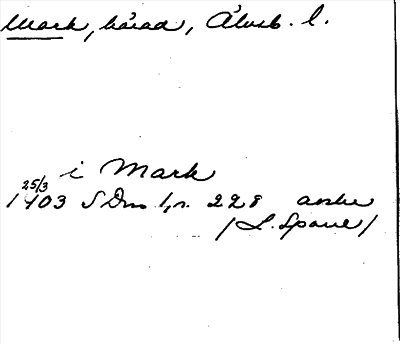 Mark, härad, Älvsb. l.
i Mark
25/3
1403 SDns 1, nr. 228 avskr
/L. Sparre/